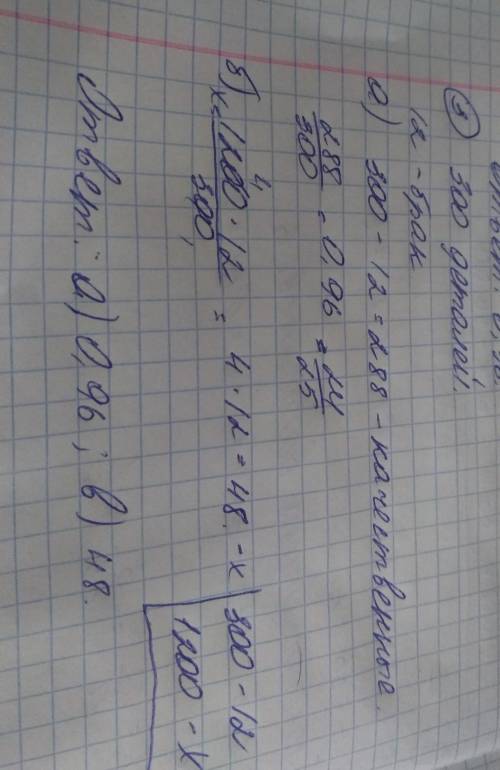 ③ 300 деталей.
12 - брак
а) 300 - 12 = 288 - качественные.
288/300 = 0,96 = 24/25
в) x = 1200 · 12 / 300 = 4 · 12 = 48 - x
4
300 - 12
1200 - x
Ответ: а) 0,96; в) 48.